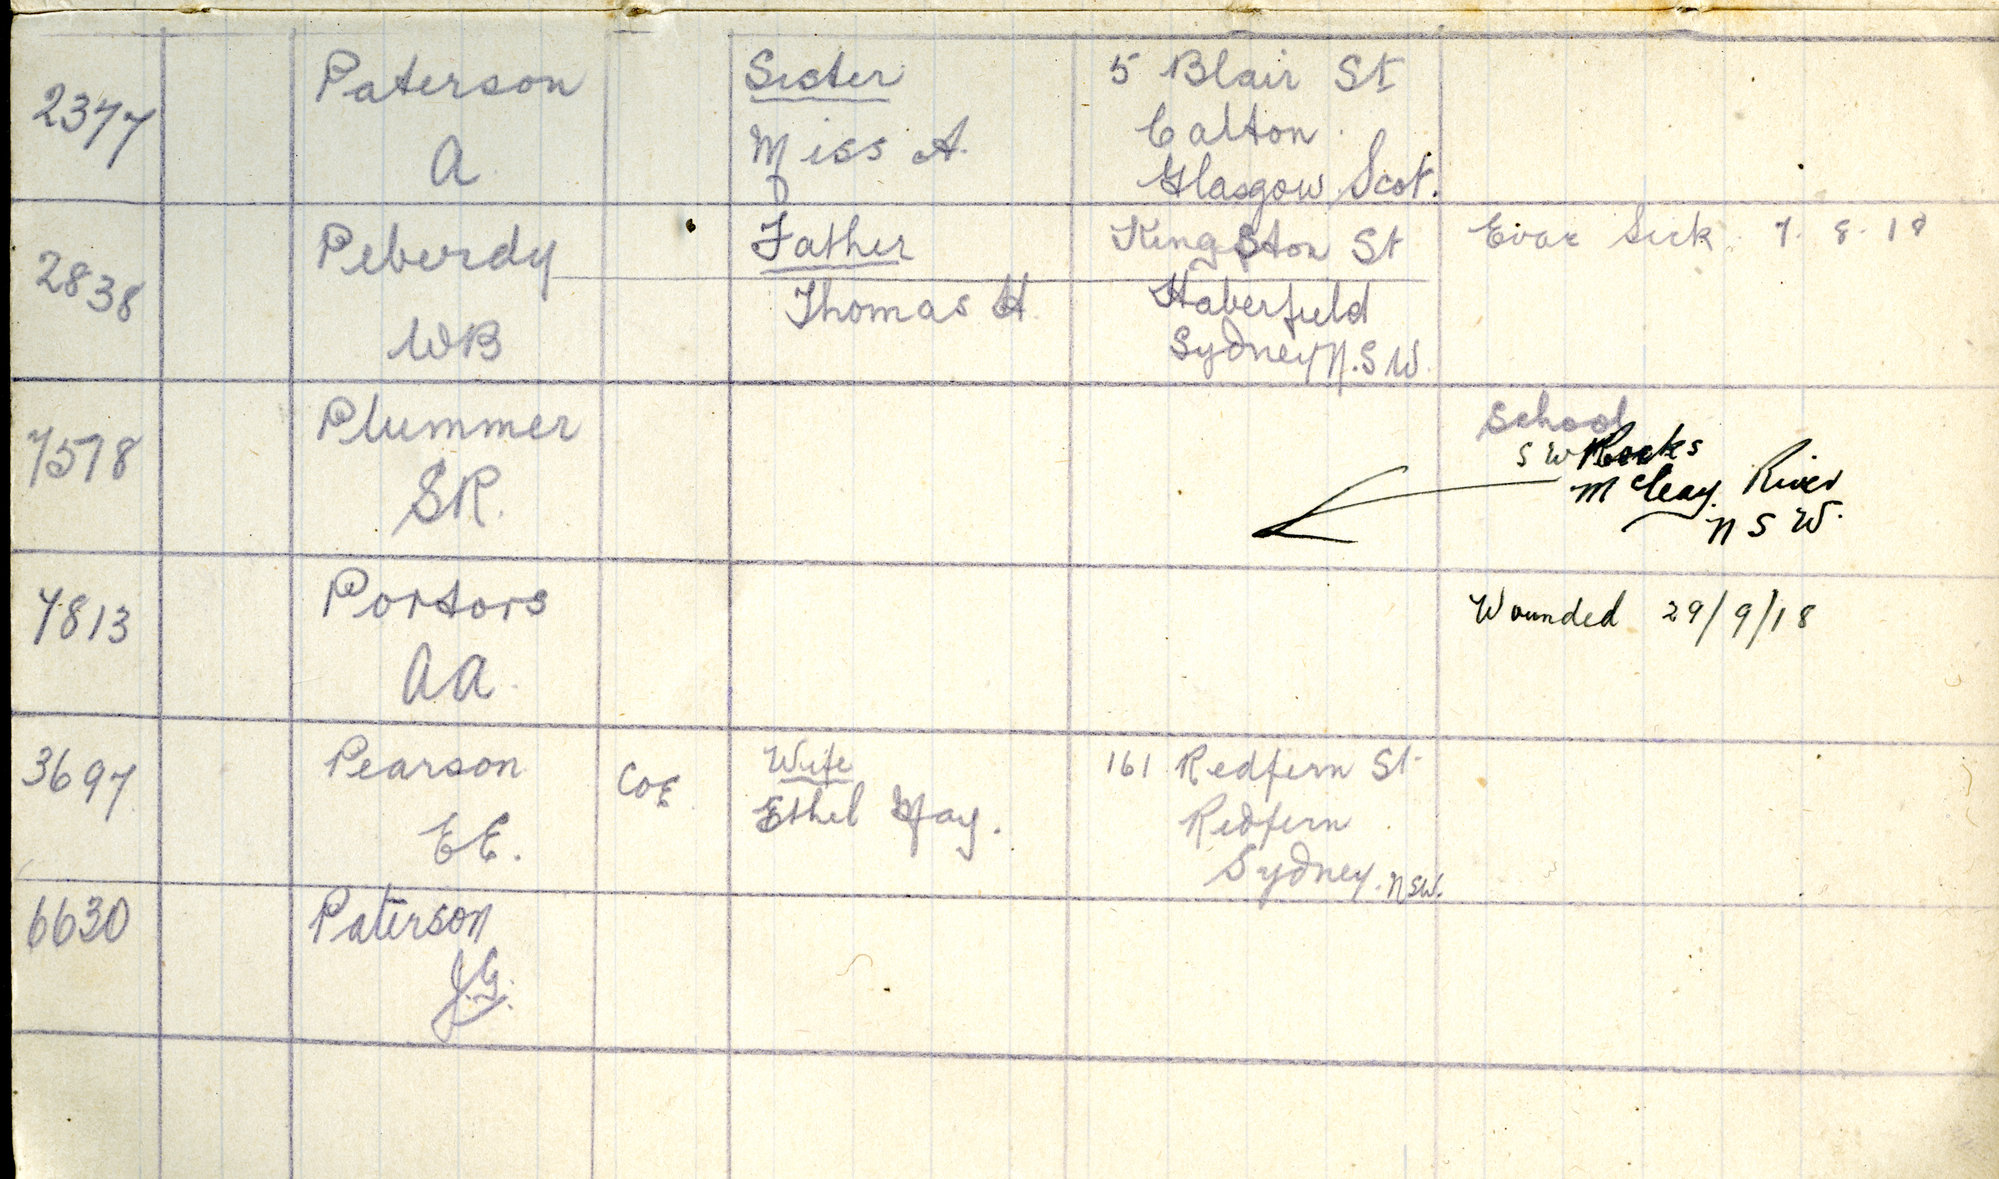 2377 Paterson Sister 5 Blair St
A Miss A. Calton
Glasgow Scot.
2838 Peberdy Father Kingston St Evac Sick 7.8.18
WB Thomas H Haberfield
Sydney N.S.W.
7578 Plummer School
SR. S W Rocks
McCleay River
N S W.
7813 Portors Wounded 29/9/18
AA.
3697 Pearson CoE Wife 161 Redfern St
EE. Ethel May. Redfern
Sydney. NSW.
6630 Paterson
J.G.